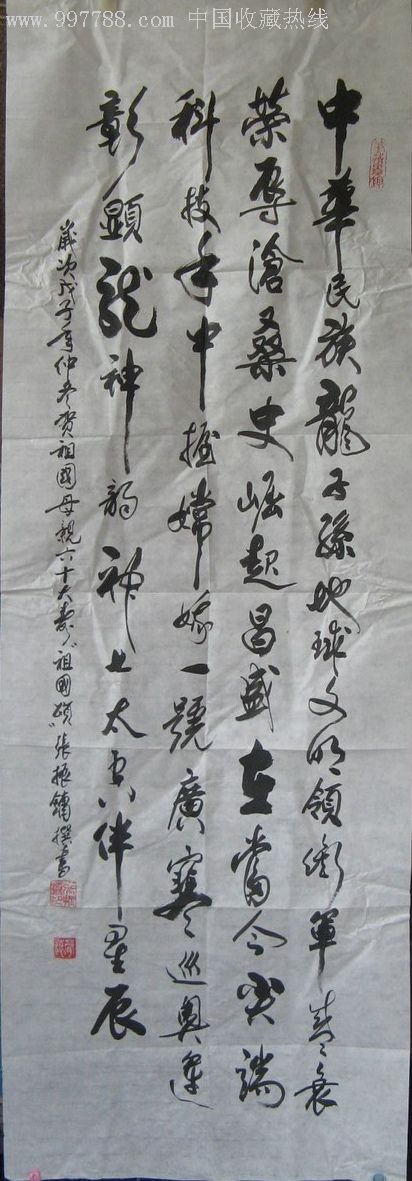 www.997788.com 中国收藏热线
中華民族龍子孫地球文明領銜軍盛衰
榮辱滄桑史崛起昌盛在當今尖端
科技手中握嫦娥一號廣寒巡奥運
彰顯龙神韵神七太空伴星辰
歲次戊子年仲冬贺祖國母親六十大壽“祖國頌”張振鏞撰書